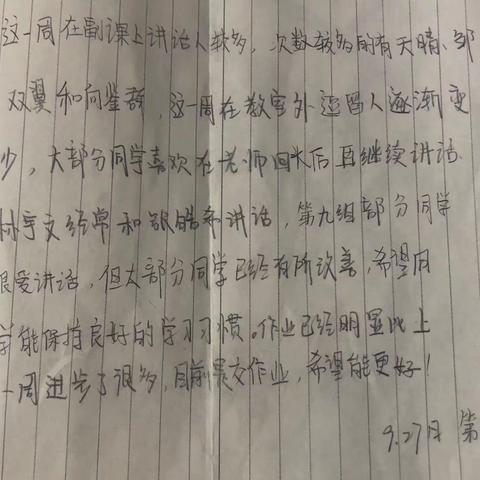 这一周在副课上讲话人较多，次数较多的有天晴、邹
双翼和向鉴
，这一周在教室外逗留人逐渐变
少，大部分同学喜欢在老师回来后再继续讲话.
宇文经常和
皓希讲话，第九组部分同学
很爱讲话，但大部分同学已经有所改善，希望同
学能保持良好的学习习惯。作业已经明显比上
一周进步了很多，目前
交作业，希望能更好！
9.27日 第